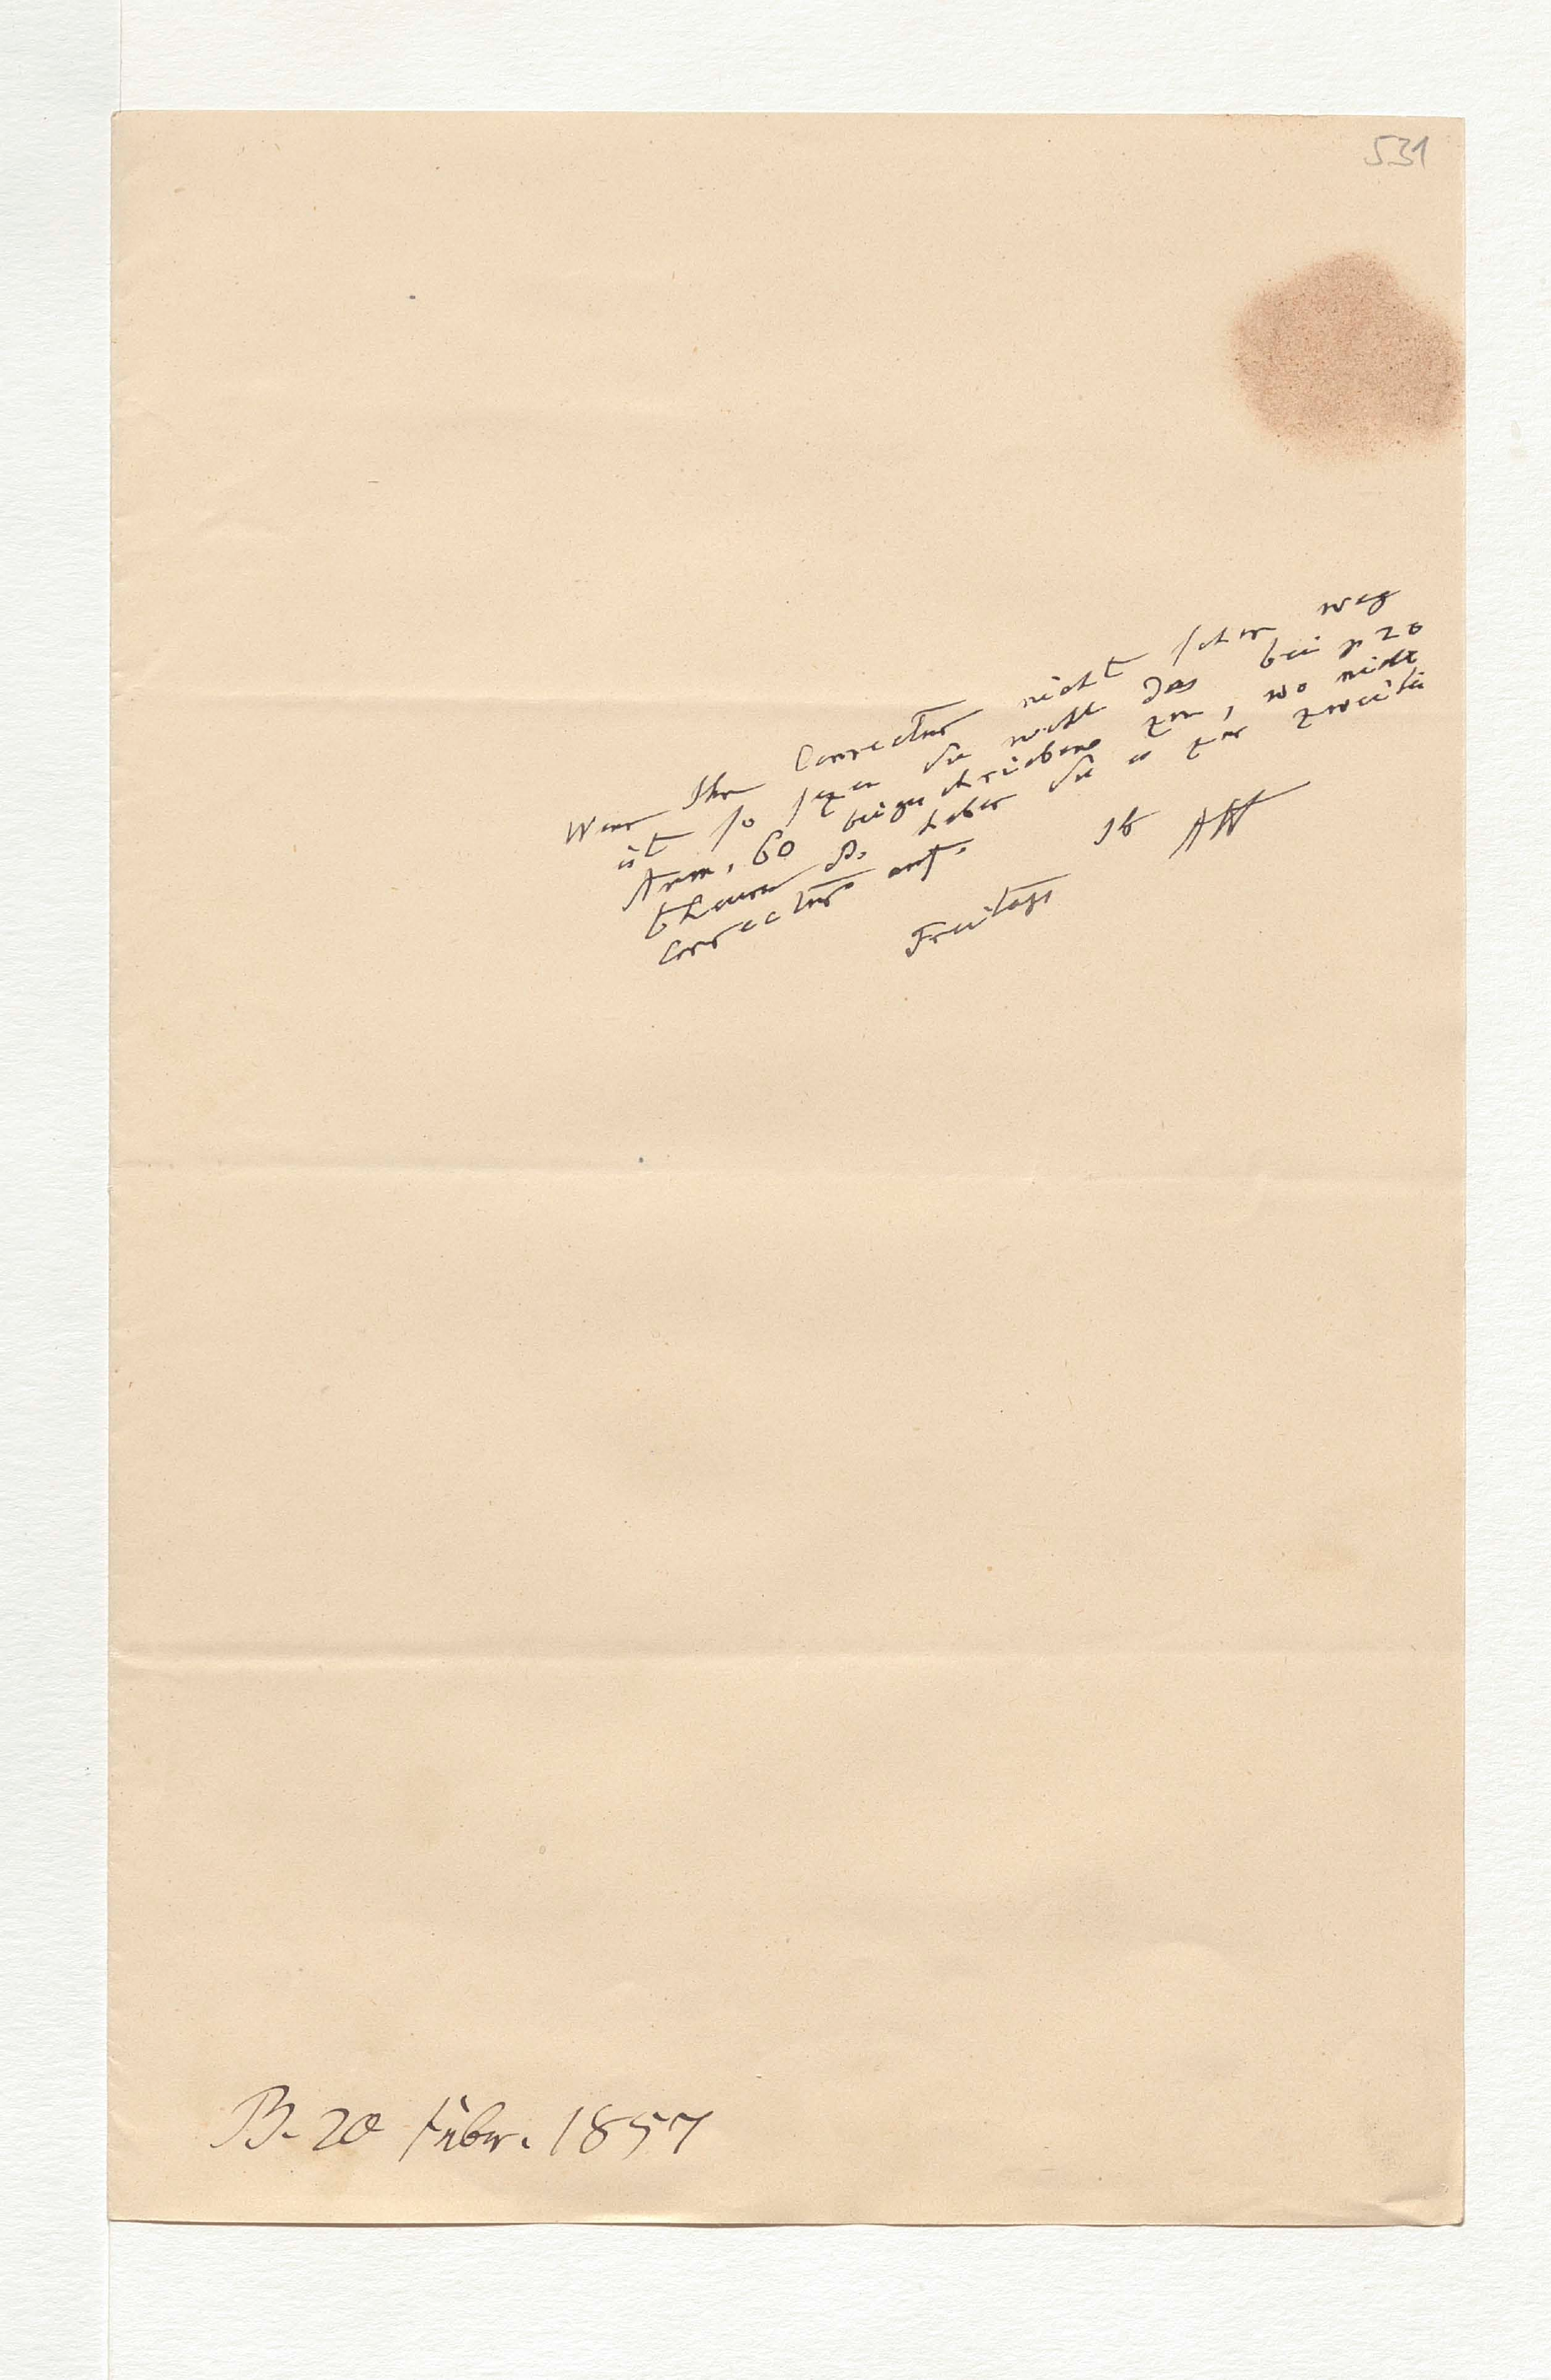 531
Wenn Ihr Correctur nicht schon weg
ist so sezen Sie wohl das bei p 20
Anm. 60 beigeschriebene zu, wo nicht
theurer B. heben Sie es zur zweiten
Correctur auf.
Ih AW
Freitags
B. 20 Febr. 1857